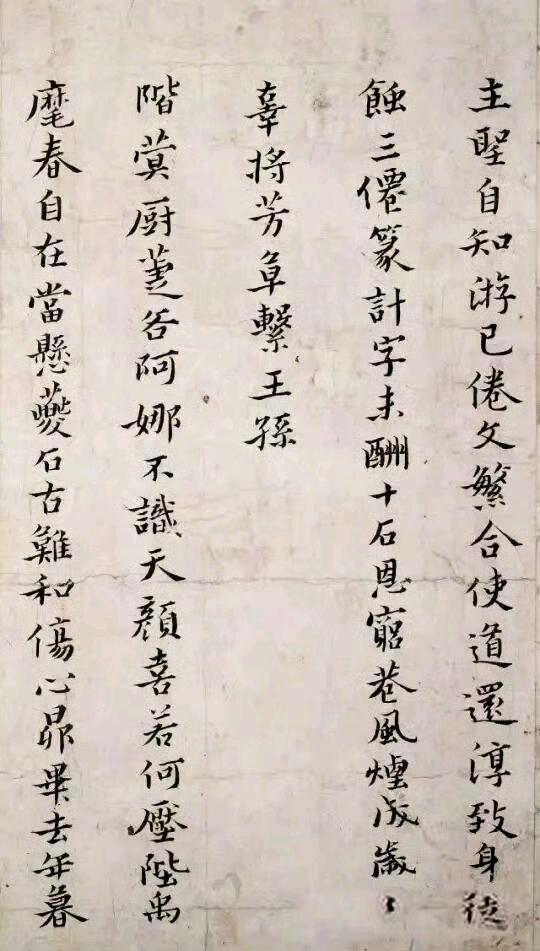 主聖自知游已倦文繁合使道還淳致身徒
蝕三僊篆計字未酬十石恩窮巷風煙成歲〻
辜將芳草繫王孫
階蓂厨萐各阿娜不識天顏喜若何壓陛禹
麾春自在當懸夔石古難和傷心昴畢去年暮